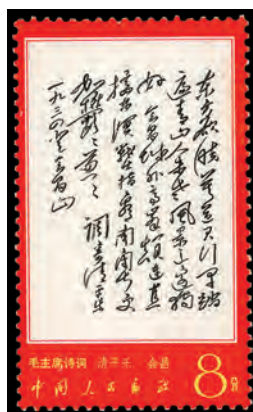 东方欲晓莫道君行早踏
遍青山人未老风景这边独
好 会昌城外高峰颠连直
接东溟战士指看南粤更
加鬱々葱々 调寄清平乐
一九三四年登会昌山
毛主席诗词 清平乐 会昌
中国人民邮政 8分